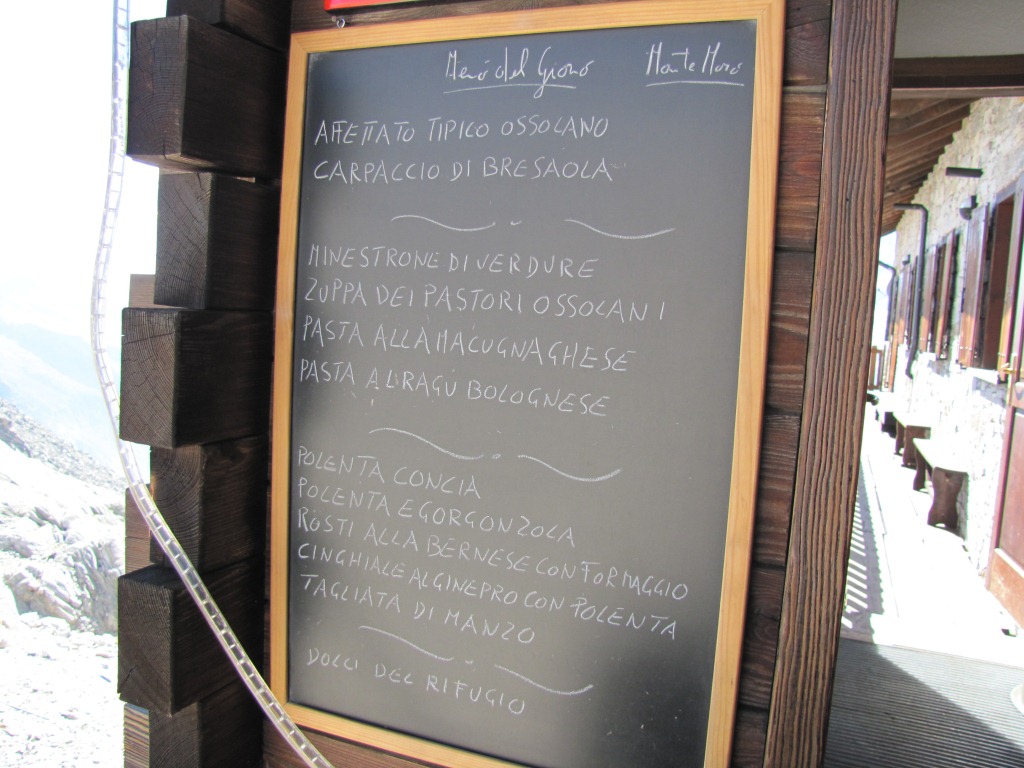 Menù del Giorno Monte Moro
AFFETTATO TIPICO OSSOLANO
CARPACCIO DI BRESAOLA
MINESTRONE DI VERDURE
ZUPPA DEI PASTORI OSSOLANI
PASTA ALLA MACUGNAGHESE
PASTA AL RAGÚ BOLOGNESE
POLENTA CONCIA
POLENTA E GORGONZOLA
RÖSTI ALLA BERNESE CON FORMAGGIO
CINGHIALE AL GINEPRO CON POLENTA
TAGLIATA DI MANZO
DOLCI DEL RIFUGIO